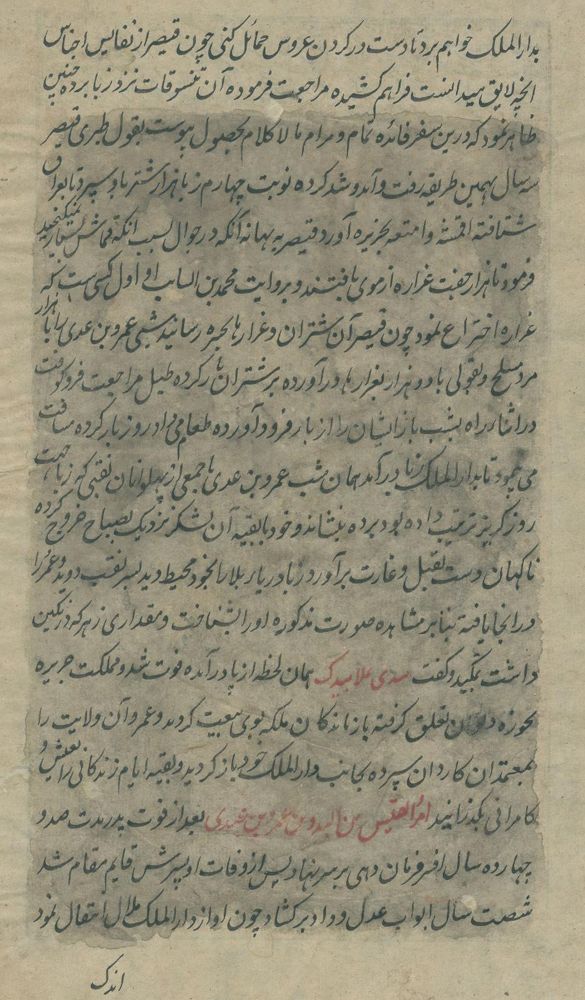 بدار الملک خواهم برد تا دست در کردن عروس حمائل کنی چون قیصر از نفایس اجناس
انچه لایق میدانست فراهم کشیده مراجعت فرموده آن تنسوقات نزد زبا برده چنین
ظاهر نمود که درین سفر فائده تمام و مرام ما لا کلام بحصول پیوست بقول طبری قیصر
سه سال بهمین طریقه رفت و آمد و شد کرده نوبت چهارم زبا هزار شتر باو سپرد تا
شتافته اقمشه و امتعه بجزیره آورد قیصر به بهانه آنکه در جوال بسبب انکه قماش بسیار نمیکنجد
فرمود تا هزار جفت غراره از موی بافتند و بروایت محمد بن السایب او اول کسی است که
غراره اختراع نمود چون قیصر آن شتران و غرارها بحیره رسانید شبی عمرو بن عدی را با هزار
مرد مسلح و بقولی با دو هزار بغرارها درآورده بر شتران بار کرده طبل مراجعت فرو کوفت
در اثناء راه بشب باز ایشان را از بار فرود آورده طعام می داد و روز بار کرده مسافت
می پیمود تا بدار الملک زبا درآمد همان شب عمرو بن عدی با جمعی از پهلوانان نقبی که زبا جهت
روز کریز ترتیب داده بود برده بنشاند و خود با بقیه آن لشکر نزدیک بصباح خروج کرده
ناکهان دست بقتل و غارت برآورد زبا دریا دریا بلا را بخود محیط دید بسر نقب دوید و عمرو را
در انجا یافته بنابر مشاهده صورت مذکوره او را بشناخت و مقداری زهر که در نکین
داشت بمکید و کفت بیدی لا بیدک همان لحظه از پا درآمده فوت شد و مملکت جزیره
بحوزه دیوان تعلق کرفته بازماندکان ملکه بوی بیعت کردند و عمرو آن ولایت را
بمعتمدان کاردان سپرده بجانب دار الملک خود باز کردید و بقیه ایام زندکانی را بعیش و
کامرانی بکذرانید امرؤ القیس بن عمرو بن عدی بعد از فوت پدر مدت صد و
چهارده سال افسر فرمان دهی بر سر نهاد پس از وفات او پسرش قایم مقام شد
شصت سال ابواب عدل و داد برکشاد چون او از دار الملک ملال انتقال نمود
اندک